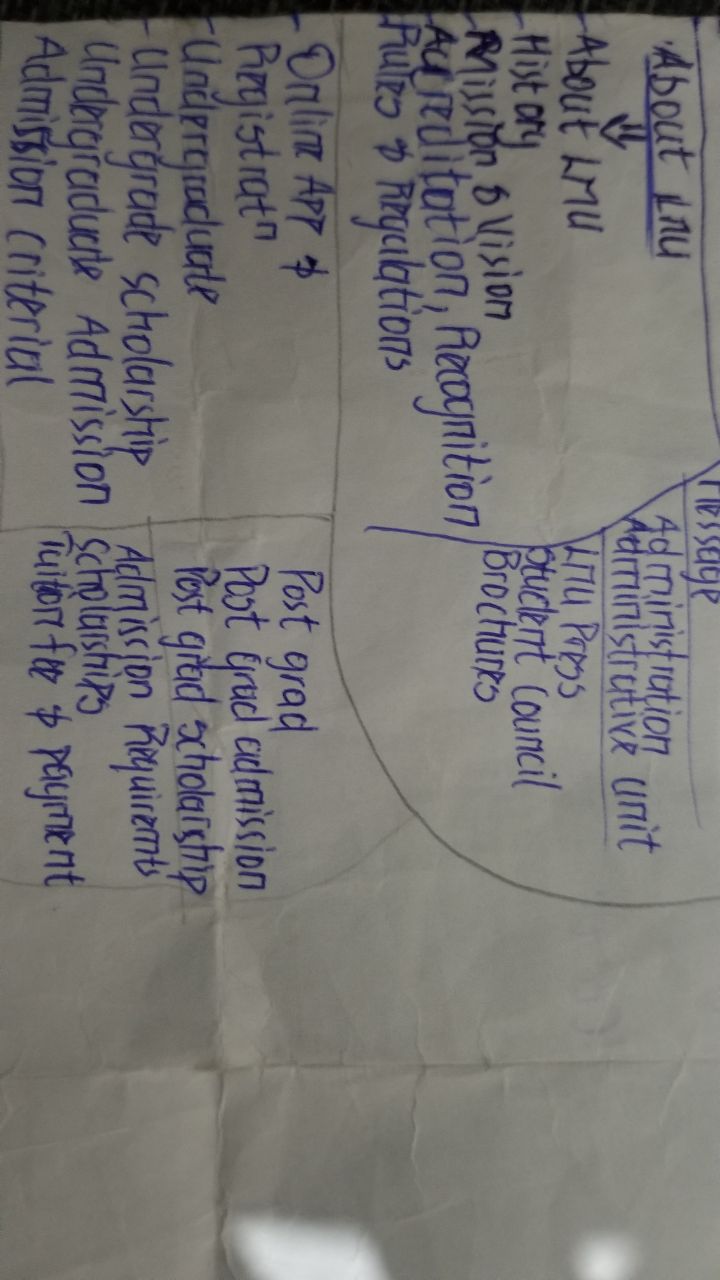 About LMU
- About LMU
- History
- Mission & Vision
Accreditation, Recognition
- Rules & Regulations
Message
Administration
Administrative Unit
LMU Press
Student Council
Brochures
- Online App &
Registratn
- Undergraduate
- Undergrade Scholarship
Undergraduate Admission
Admission Criterial
Post grad
Post grad admission
Post grad scholarship
Admission Requirements
Scholarships
Tuition fee & payment